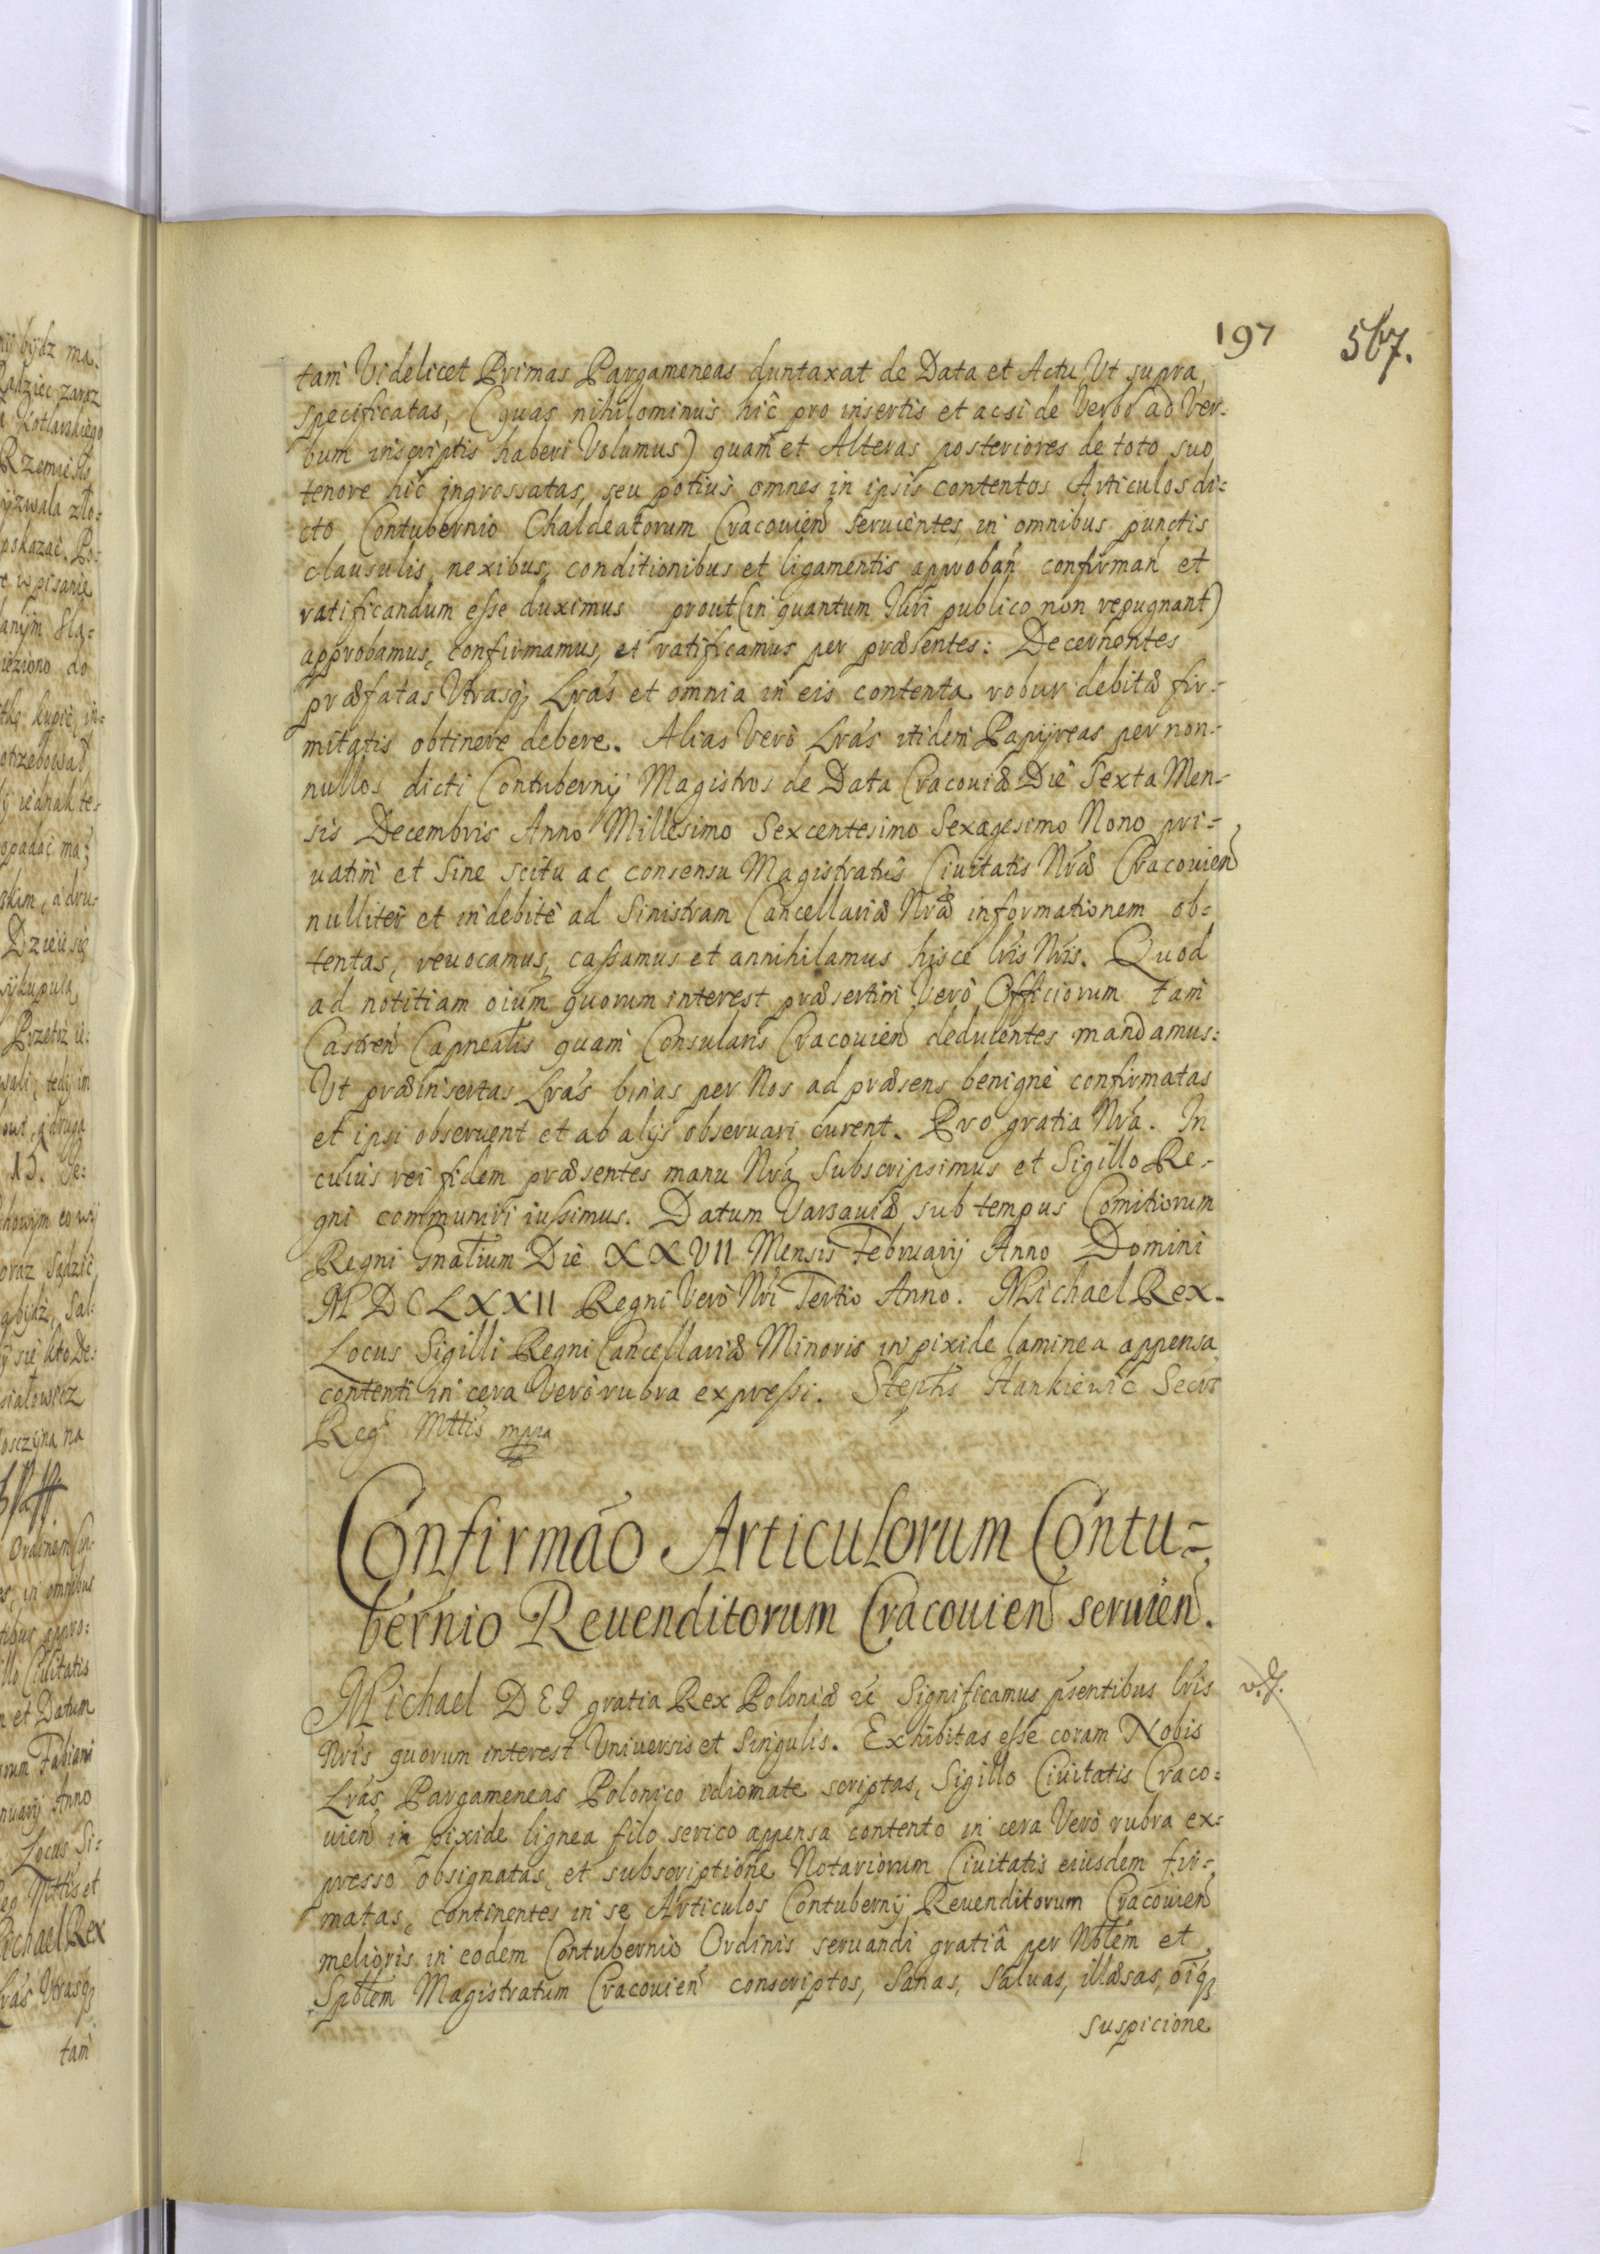 197 567.
tam Videlicet Primas Pargameneas duntaxat de Data et Actu Ut supra
specificatas, (quas nihilominus hic pro insertis et acsi de Verbo ad Ver-
bum inscriptis haberi Volumus) quam et Alteras posteriores de toto suo
tenore hic ingrossatas, seu potius omnes in ipsis contentos Articulos di-
cto Contubernio Chaldeatorum Cracouien seruientes, in omnibus punctis
clausulis, nexibus, conditionibus et ligamentis approban confirman et
ratificandum esse duximus prout (in quantum Iuri publico non repugnant)
approbamus, confirmamus, et ratificamus per præsentes: Decernentes
præfatas Utrasq Lras et omnia in eis contenta robur debitæ fir-
mitatis obtinere debere. Alias Verò Lras itidem Papyreas per non-
nullos dicti Contubernij Magistros de Data Cracouiæ Die Sexta Men-
sis Decembris Anno Millesimo Sexcentesimo Sexagesimo Nono pri-
uatim et Sine scitu ac consensu Magistratus Ciuitatis Nræ Cracouien
nulliter et indebitè ad Sinistram Cancellariæ Nræ informationem ob-
tentas, reuocamus, cassamus et annihilamus hisce lris Nris. Quod
ad notitiam oium quorum interest præsertim Verò Officiorum tam
Castren Capnealis quam Consularis Cracouien deducentes mandamus:
Ut præinsertas Lras binas per Nos ad præsens benignè confirmatas
et ipsi obseruent et ab alijs obseruari curent. Pro gratia Nra. In
cuius rei fidem præsentes manu Nra Subscripsimus et Sigillo Re-
gni communiri iussimus. Datum Varsauiæ sub tempus Comitiorum
Regni Gnalium Die XXVII Mensis Februarij Anno Domini
MDCLXXII Regni Verò Nri Tertio Anno. Michael Rex.
Locus Sigilli Regni Cancellariæ Minoris in pixide laminea appensa
contenti in cera Verò rubra expressi. Stephs Hankiewic Secrs
Reg Mttis mpra
Confirmao Articulorum Contu-
bernio Reuenditorum Cracouien seruien.
Michael DEI gratia Rex Poloniæ Significamus psentibus lris
Nris quorum interest Uniuersis et Singulis. Exhibitas esse coram Nobis
Lras Pargameneas Polonico idiomate scriptas, Sigillo Ciuitatis Craco-
uien in pixide lignea filo serico appensa contento in cera Verò rubra ex-
presso obsignatas, et subscriptione Notariorum Ciuitatis eiusdem fir-
matas, continentes in se Articulos Contubernij Reuenditorum Cracouien
melioris in eodem Contubernio Ordinis seruandi gratiâ per Nblem et
Spblem Magistratum Cracouien conscriptos, Sanas, Saluas, illæsas, oiq
suspicione